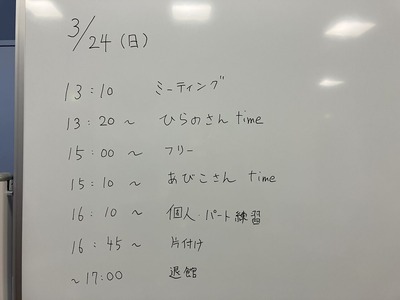 3/24(日)
13:10 ミーティング
13:20~ ひらのさん time
15:00~ フリー
15:10~ あびこさん time
16:10~ 個人・パート練習
16:45~ 片付け
~17:00 退館